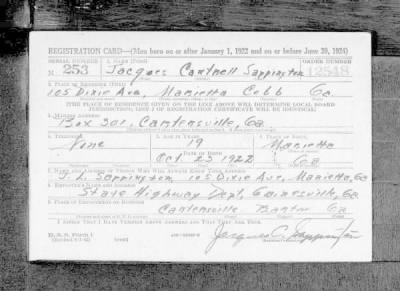 REGISTRATION CARD—(Men born on or after January 1, 1922 and on or before June 30, 1924)
SERIAL NUMBER 1. NAME (Print) ORDER NUMBER
N 253 Jacques Cantrell Sappington 12548
2. PLACE OF RESIDENCE (Print)
105 Dixie Ave, Marietta Cobb Ga
[THE PLACE OF RESIDENCE GIVEN ON THE LINE ABOVE WILL DETERMINE LOCAL BOARD
JURISDICTION; LINE 2 OF REGISTRATION CERTIFICATE WILL BE IDENTICAL]
3. MAILING ADDRESS
Box 301, Cartersville, Ga
4. TELEPHONE 5. AGE IN YEARS 6. PLACE OF BIRTH
None 19 Marietta
DATE OF BIRTH
Oct 23 1922 Ga
7. NAME AND ADDRESS OF PERSON WHO WILL ALWAYS KNOW YOUR ADDRESS
Sappington, 105 Dixie Ave, Marietta, Ga
8. EMPLOYER'S NAME AND ADDRESS
State Highway Dept, Gainesville, Ga
9. PLACE OF EMPLOYMENT OR BUSINESS
Cartersville Bartow Ga
I AFFIRM THAT I HAVE VERIFIED ABOVE ANSWERS AND THAT THEY ARE TRUE.
D. S. S. Form 1
Jacques C. Sappington